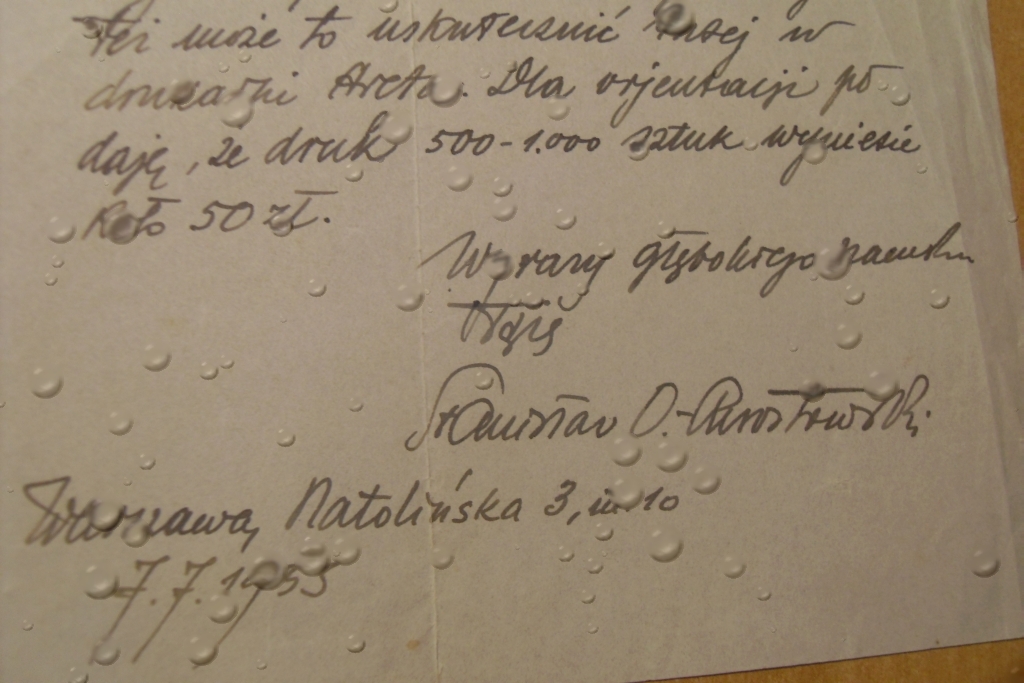 też może to uskutecznić taniej w
drukarni Arcta. Dla orjentacji po-
daję, że druk 500-1.000 sztuk wyniesie
koło 50 zł.
Wyrazy głębokiego szacunku
Stanisław O.-
Warszawa, Natolińska 3, m 10
7.7.1935